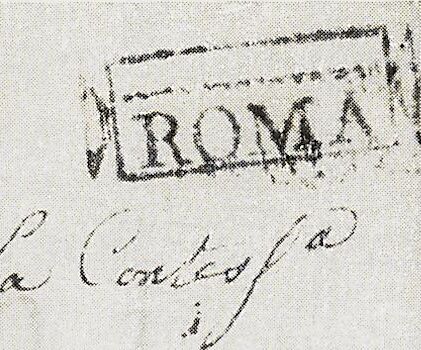 ROMA
la Contessa